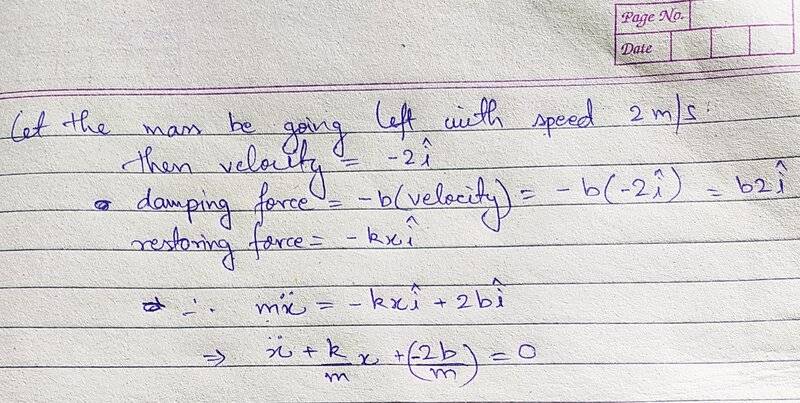 Page No.
Date
Let the mass be going left with speed 2 m/s.
then velocity = -2î
damping force = -b(velocity) = -b(-2î) = b2î
restoring force = -kxî
∴ mẍ = -kxî + 2bî
⇒ ẍ + k/m x + (-2b/m) = 0